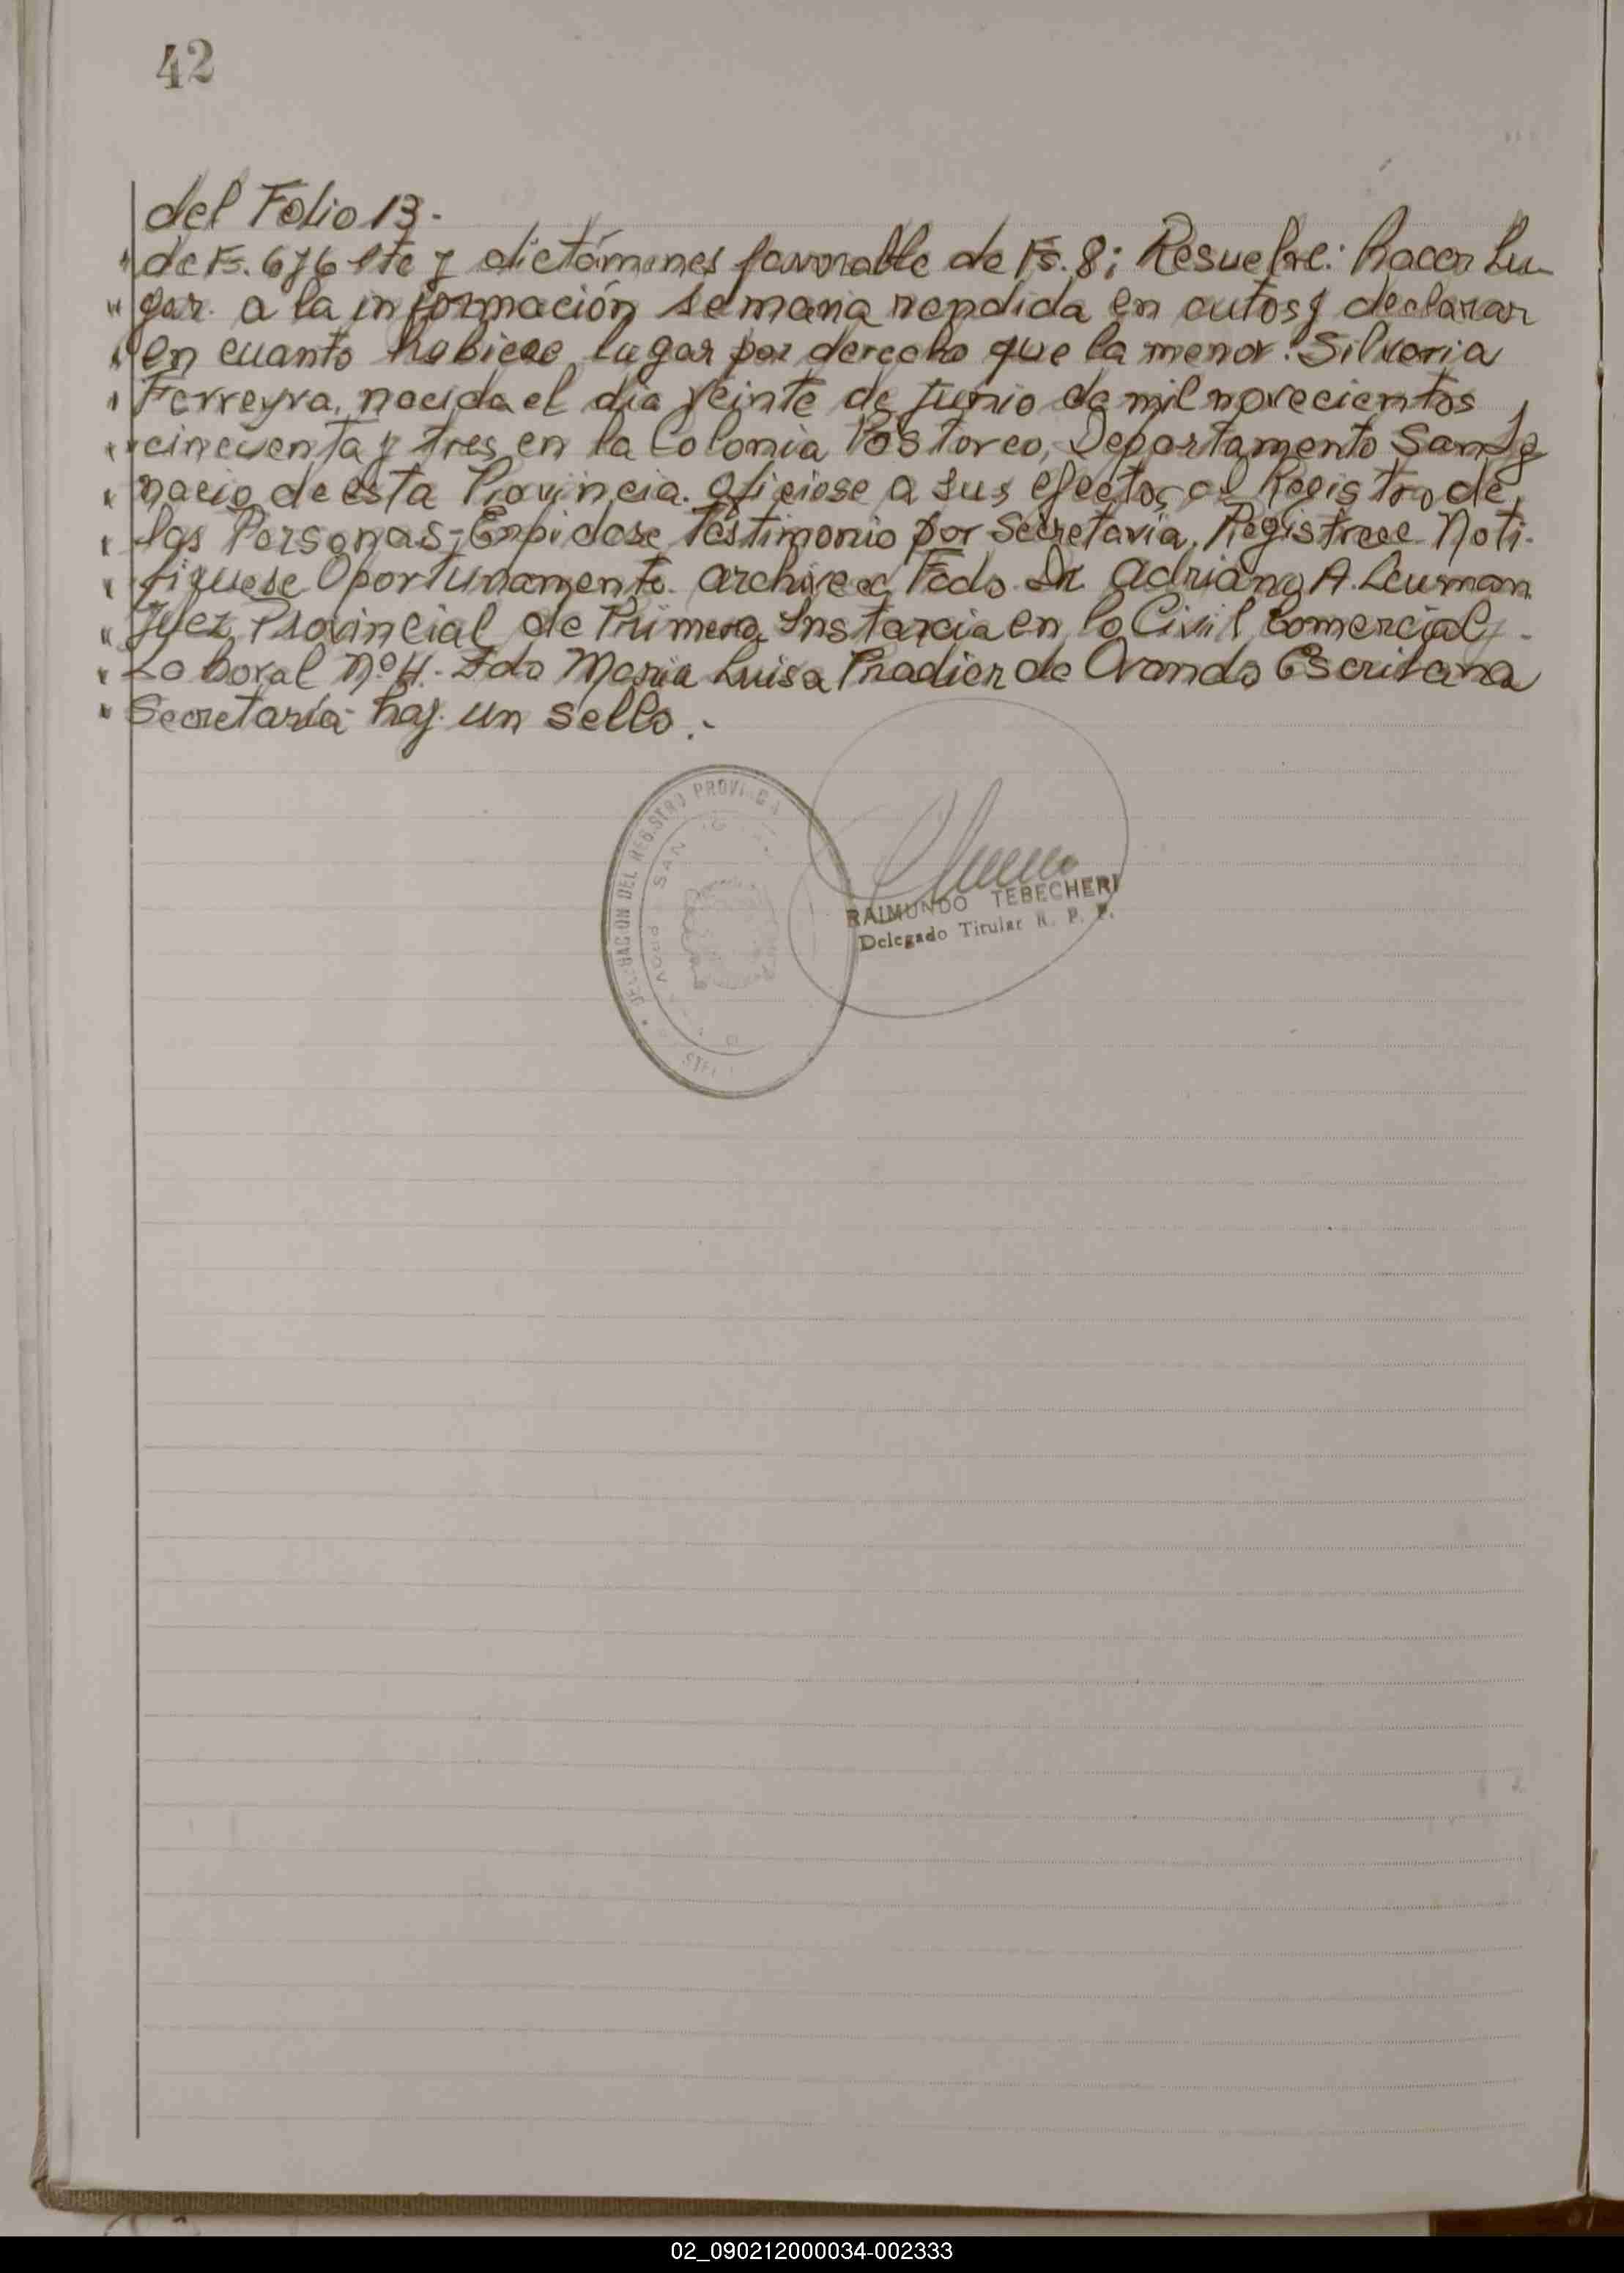 42
del Folio 13.-
" de Fs. 6 y 6 vte y dictámenes favorable de Fs. 8; Resuelve: hacer Lu-
" gar a la información sumaria rendida en autos y declarar
" en cuanto hubiere lugar por derecho que la menor: Silveria
" Ferreyra, nacida el día veinte de Junio de mil novecientos
" cincuenta y tres en la Colonia Pastoreo, Departamento San Ig
" nacio de esta Provincia. Oficiese a sus efectos al Registro de
" las Personas-Expidase Testimonio por Secretaria, Registrese Noti-
" fiquese Oportunamente. archivese Fdo. Dr. Adriana A. Leuman
" Juez Provincial de Primera Instancia en lo Civil Comercial y -
" Laboral Nº 4.- Fdo Maria Luisa Pradier de Ovando Escribana
" Secretaria- hay un sello.-
DELEGACION DEL REGISTRO PROVINCIA
SAN
PROV
RAIMUNDO TEBECHERI
Delegado Titular R. P. P.
02_090212000034-002333